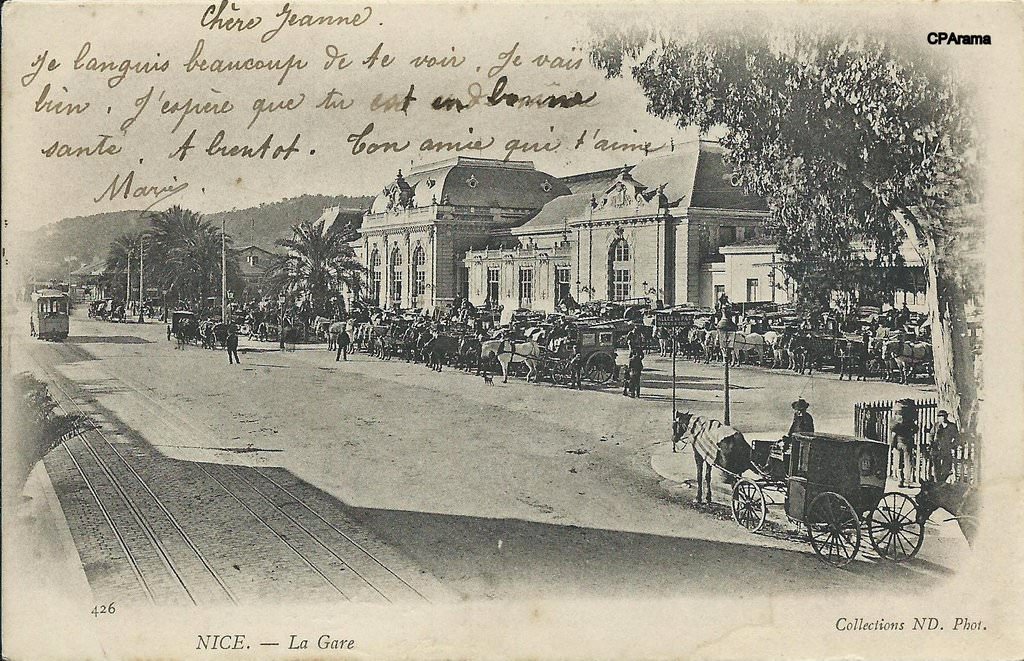 Chère Jeanne.
Je languis beaucoup de te voir. Je vais
bien. J'espère que tu est en bonne
sante. A bientot. Ton amie qui t'aime
Marie.
CPArama
426
NICE. — La Gare
Collections ND. Phot.